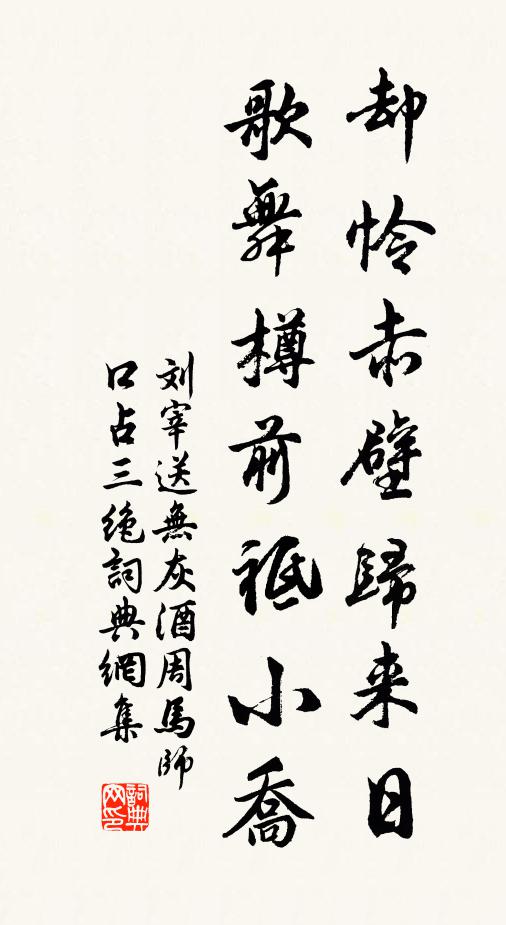 却怜赤壁歸来日
歌舞樽前祗小喬
刘宰送無灰酒周馬師
口占三絶詞典網集
詞典
网印